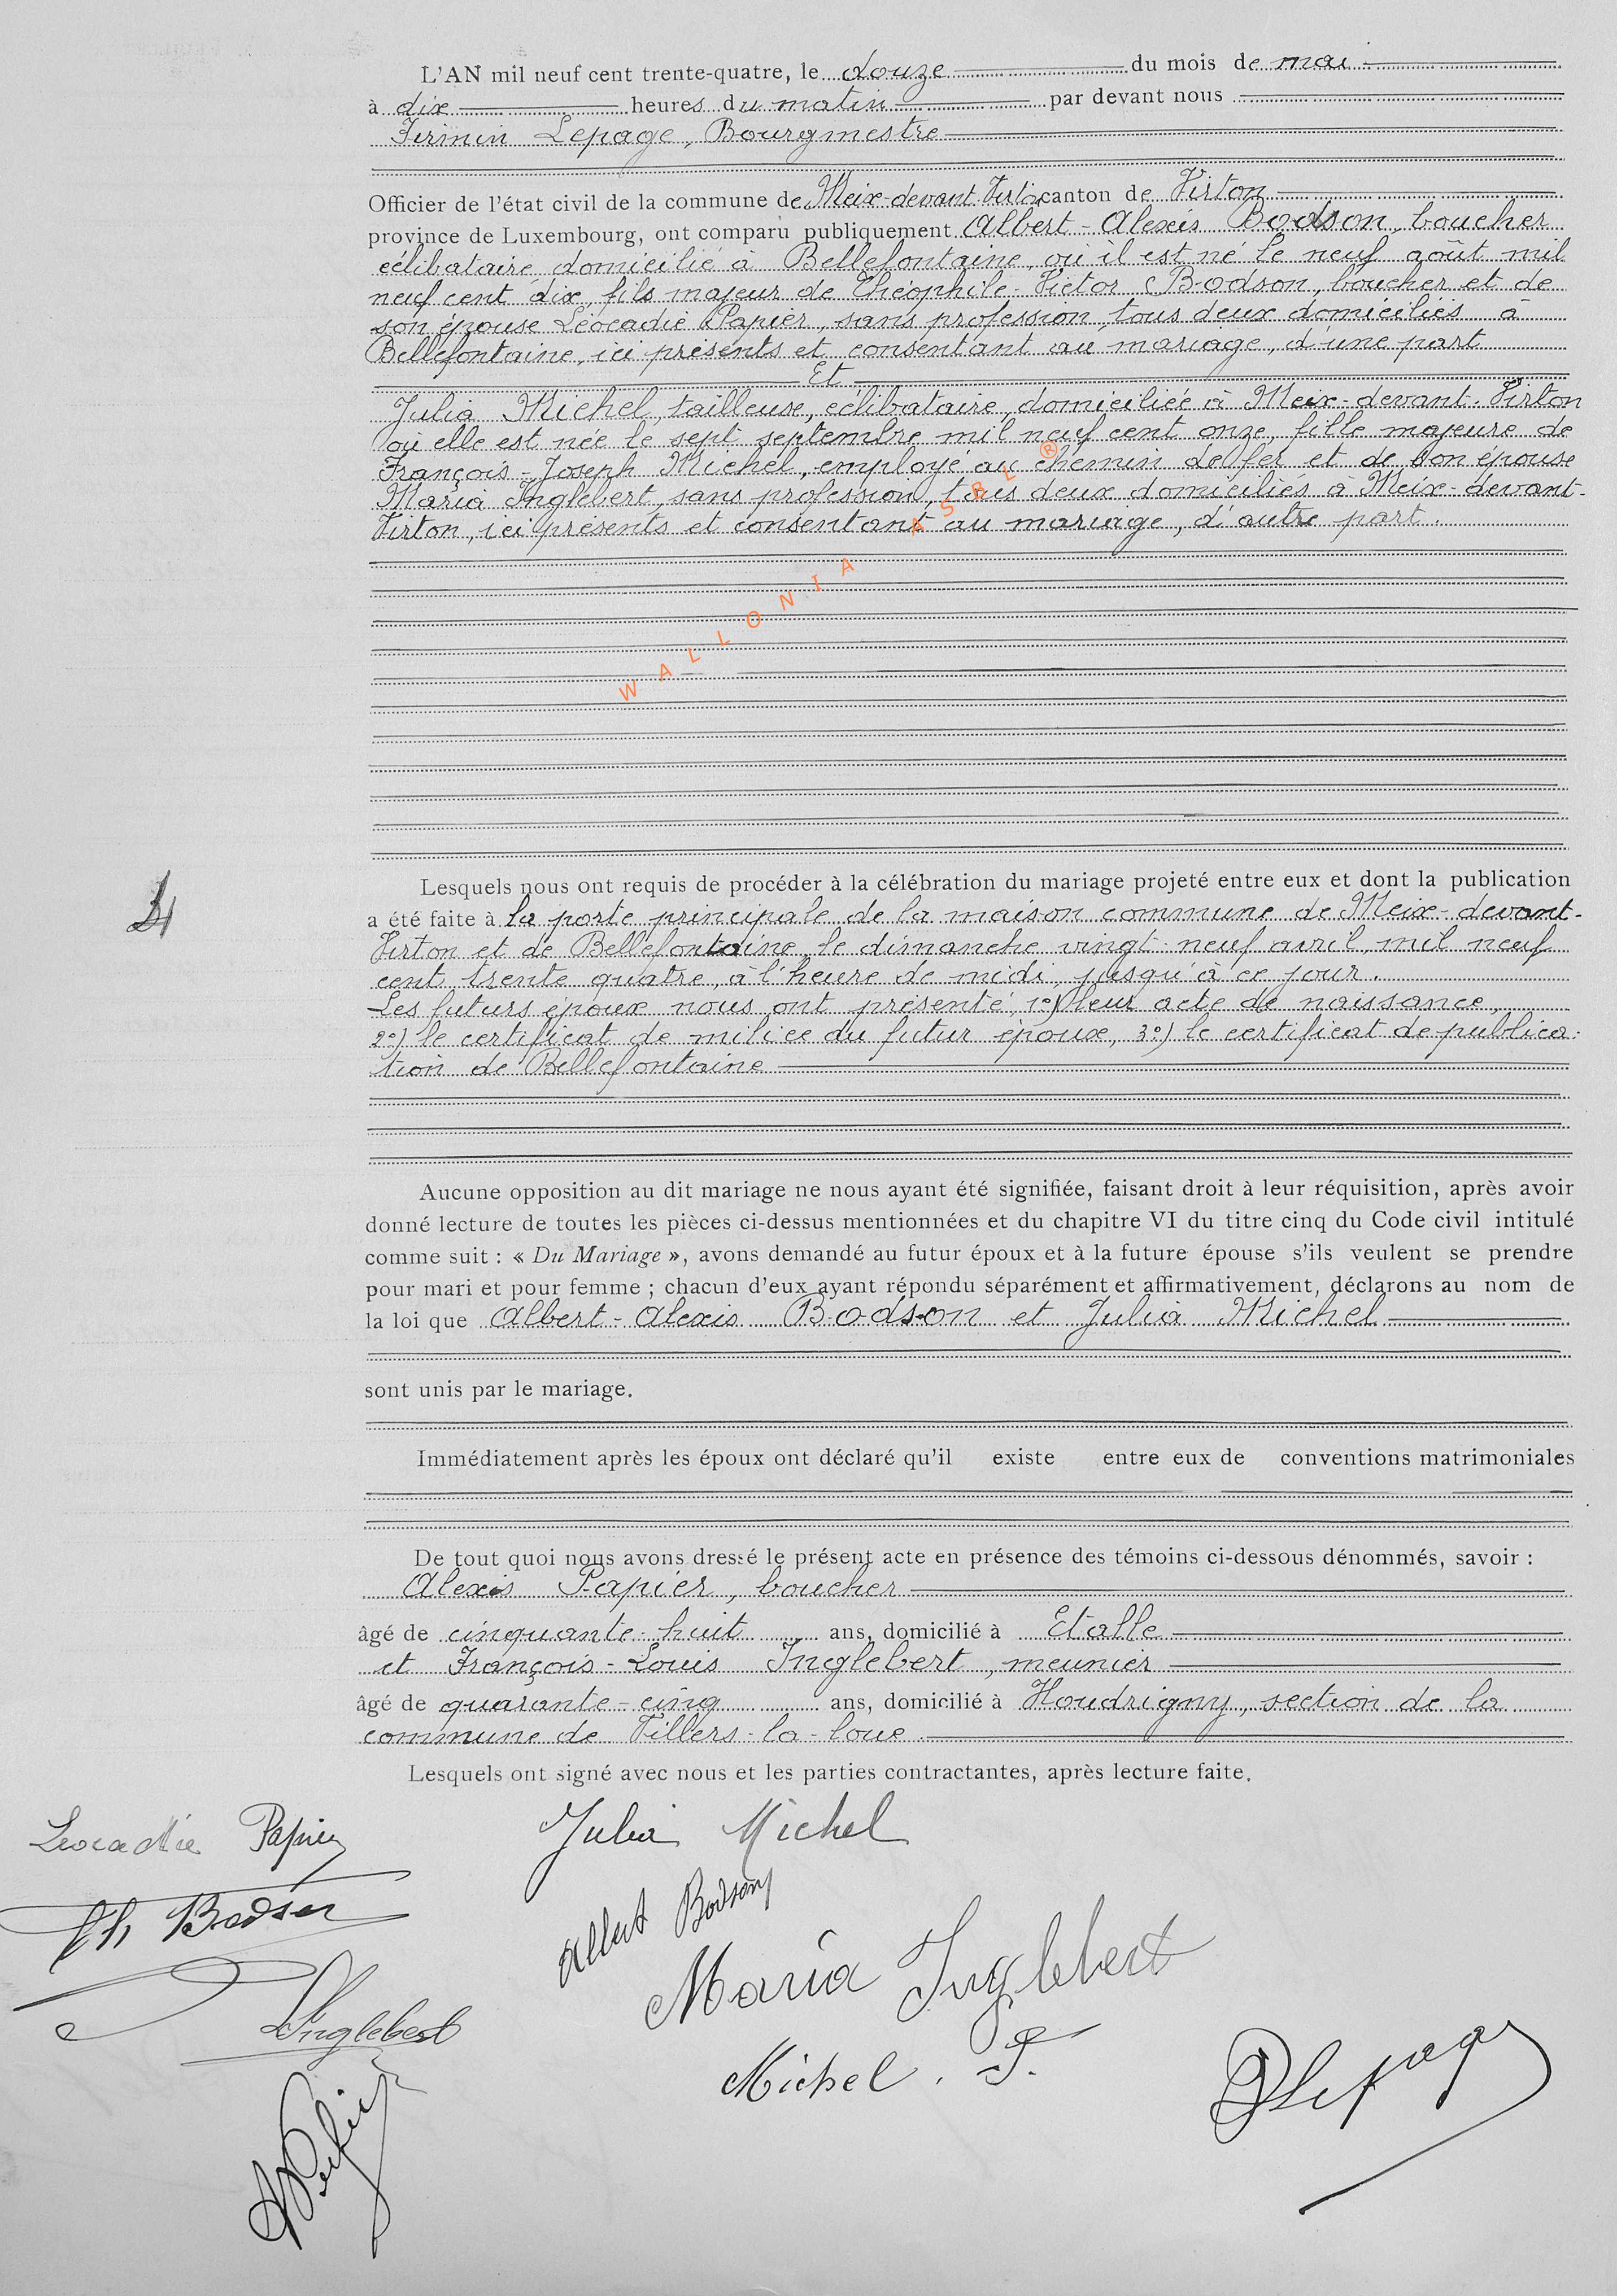 L'AN mil neuf cent trente-quatre, le douze du mois de mai
à dix heures du matin par devant nous
Firmin Lepage, Bourgmestre
Officier de l'état civil de la commune de Meix-devant-Virton canton de Virton
province de Luxembourg, ont comparu publiquement Albert-Alexis Bodson, boucher
célibataire, domicilié à Bellefontaine, où il est né le neuf août mil
neuf cent dix, fils majeur de Théophile-Victor Bodson, boucher et de
son épouse Léocadie Papier, sans profession, tous deux domiciliés à
Bellefontaine, ici présents et consentant au mariage, d'une part
Et
Julia Michel, tailleuse, célibataire, domiciliée à Meix-devant-Virton
où elle est née le sept septembre mil neuf cent onze, fille majeure de
François-Joseph Michel, employé au chemin de fer et de son épouse
Maria Inglebert, sans profession, tous deux domiciliés à Meix-devant-
Virton, ici présents et consentant au mariage, d'autre part.
WALLONIA ASBL ®
4
Lesquels nous ont requis de procéder à la célébration du mariage projeté entre eux et dont la publication
a été faite à la porte principale de la maison commune de Meix-devant-
Virton et de Bellefontaine, le dimanche vingt-neuf avril, mil neuf
cent trente quatre, à l'heure de midi, jusqu'à ce jour.
Les futurs époux nous ont présenté, 1°) leur acte de naissance,
2°) le certificat de milice du futur époux, 3°) le certificat de publica-
tion de Bellefontaine
Aucune opposition au dit mariage ne nous ayant été signifiée, faisant droit à leur réquisition, après avoir
donné lecture de toutes les pièces ci-dessus mentionnées et du chapitre VI du titre cinq du Code civil intitulé
comme suit : « Du Mariage », avons demandé au futur époux et à la future épouse s'ils veulent se prendre
pour mari et pour femme ; chacun d'eux ayant répondu séparément et affirmativement, déclarons au nom de
la loi que Albert-Alexis Bodson et Julia Michel
sont unis par le mariage.
Immédiatement après les époux ont déclaré qu'il existe entre eux de conventions matrimoniales
De tout quoi nous avons dressé le présent acte en présence des témoins ci-dessous dénommés, savoir :
Alexis Papier, boucher
âgé de cinquante-huit ans, domicilié à Etalle
et François-Louis Inglebert, meunier
âgé de quarante-cinq ans, domicilié à Houdrigny, section de la
commune de Villers-la-loue.
Lesquels ont signé avec nous et les parties contractantes, après lecture faite.
Léocadie Papier
Julia Michel
Th Bodson
Albert Bodson
Maria Inglebert
Inglebert
Michel. F.
A Papier
Lepage